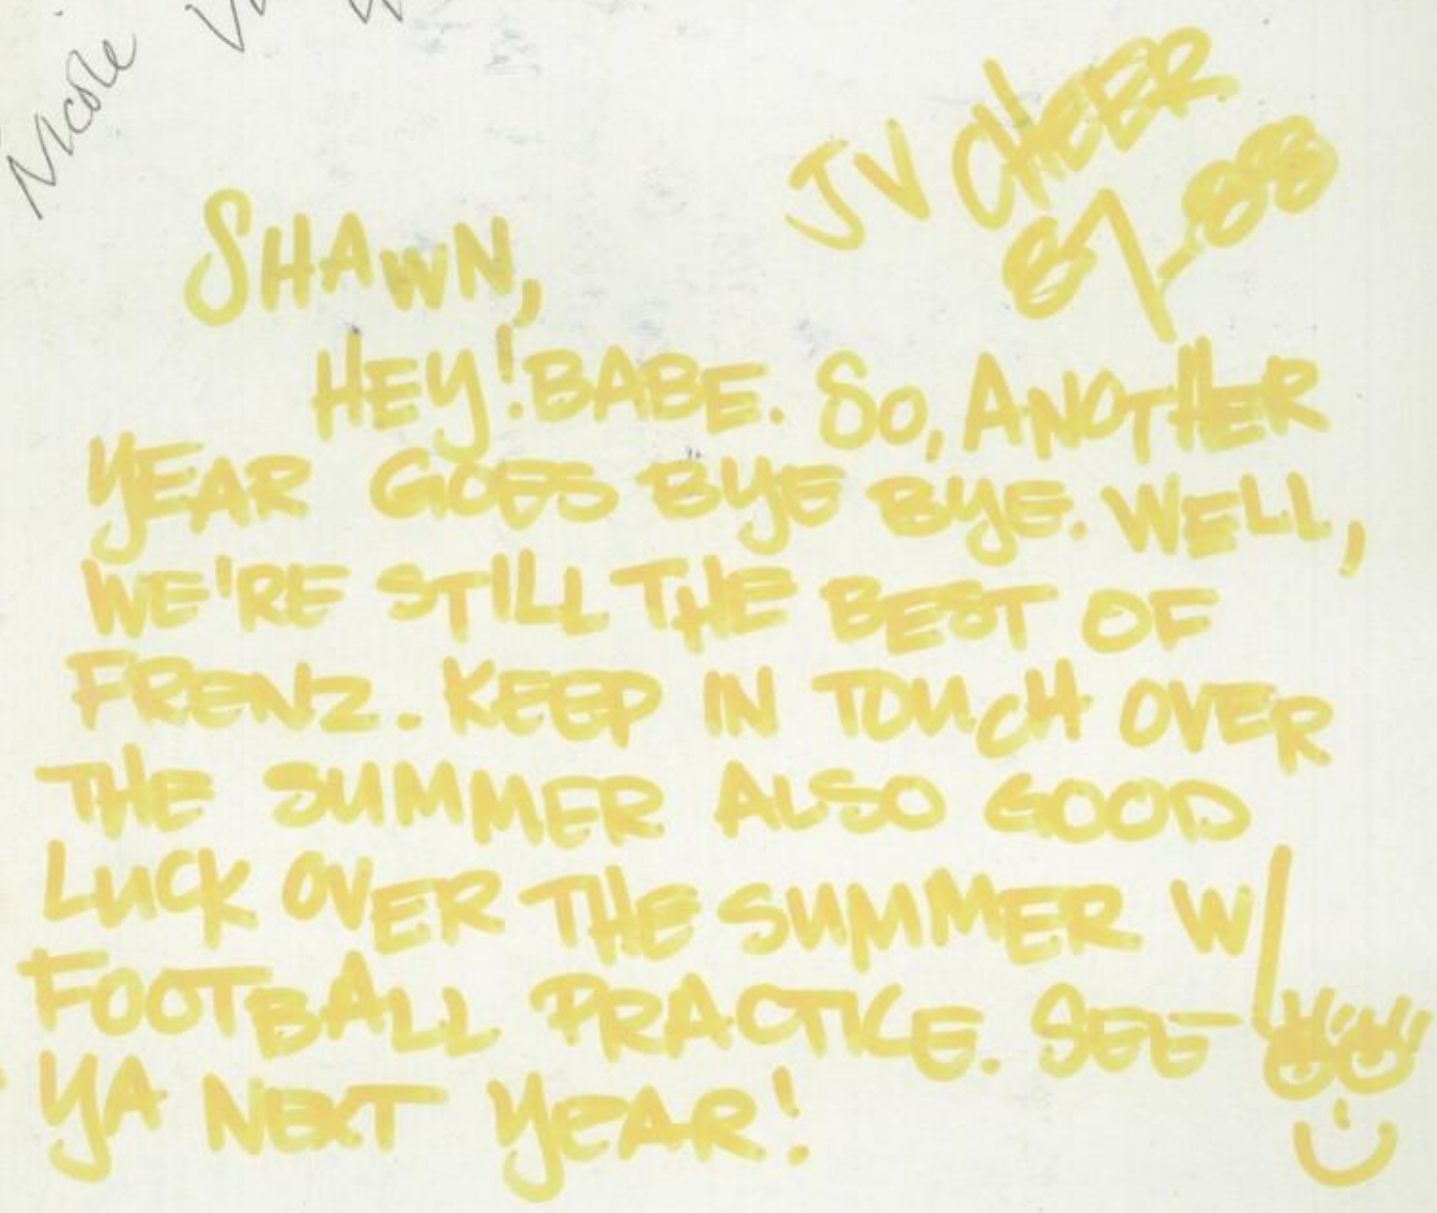 Nicole
JV CHEER
87-88
SHAWN,
HEY! BABE. SO, ANOTHER
YEAR GOES BYE BYE. WELL,
WE'RE STILL THE BEST OF
FRENZ. KEEP IN TOUCH OVER
THE SUMMER ALSO GOOD
LUCK OVER THE SUMMER W/
FOOTBALL PRACTICE. SEE-
YA NEXT YEAR!